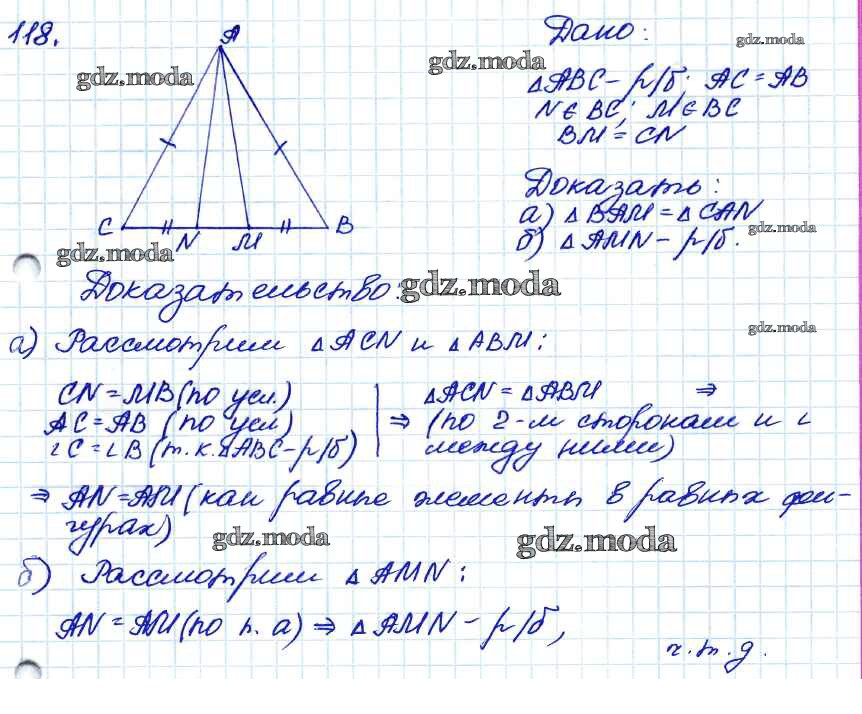 118.
A
C
N
M
B
Дано:
△ABC – р/б; AC = AB
N ∈ BC; M ∈ BC
BM = CN
Доказать:
а) △BAM = △CAN
б) △AMN – р/б.
Доказательство:
а) Рассмотрим △ACN и △ABM:
CN = MB (по усл.)
AC = AB (по усл)
∠C = ∠B (т.к. △ABC – р/б)
⇒ △ACN = △ABM ⇒
(по 2-м сторонам и ∠
между ними)
⇒ AN = AM (как равные элементы в равных фи-
гурах)
б) Рассмотрим △AMN:
AN = AM (по п. а) ⇒ △AMN – р/б,
ч.т.д.
gdz.moda
gdz.moda
gdz.moda
gdz.moda
gdz.moda
gdz.moda
gdz.moda
gdz.moda
gdz.moda